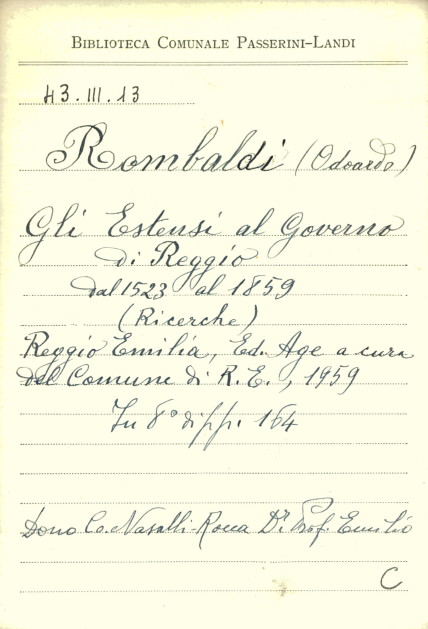 BIBLIOTECA COMUNALE PASSERINI-LANDI
43.III.13
Rombaldi (Odoardo)
Gli Estensi al Governo
di Reggio
dal 1523 al 1859
(Ricerche)
Reggio Emilia, Ed. Age a cura
del Comune di R. E., 1959
In 8° di pp. 164
Dono Co. Nasalli-Rocca Dr. Prof. Emilio
C